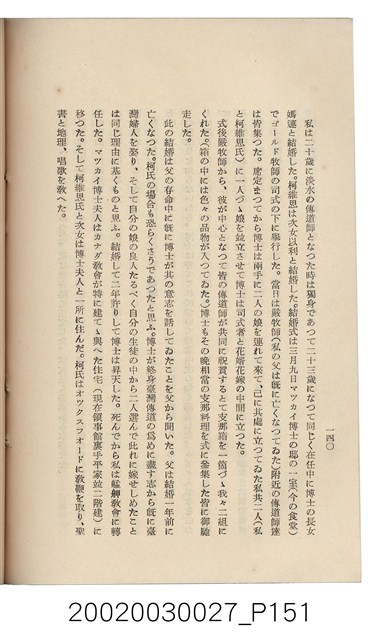 一四〇
私は二十歳に淡水の傳道師となつた時は獨身であつて二十三歳になつて同じく在任中に博士の長女
媽連と結婚した。柯維思は次女以利と結婚した。結婚式は三月九日マツカイ博士の邸の一室(今の食堂)
でゴールド牧師の司式の下に舉行した。當日は嚴牧師(私の父は既に亡くなつてゐた)附近の傳道師達
は皆集つた。席定まつてから博士は兩手に二人の娘を連れて來て、己に其處に立つてゐた私共二人(私
と柯維思氏)に一人づゝ娘を竝立させて博士は司式者と花婿花嫁の中間に立つた。
式後嚴牧師から、彼が中心となつて皆の傳道師が共同に祝賀するとて支那箱を一箇づゝ我々二組に
くれた。(箱の中には色々の品物が入つてゐた。)博士もその晩相當の支那料理を式に參集した皆に御馳
走した。
此の結婚は父の存命中に既に博士が其の意志を話してゐたことを父から聞いた。父は結婚一年前に
亡くなつた。柯氏の場合も恐らくさうであつたと思ふ。博士が終身臺灣傳道の爲めに盡す志から既に臺
灣婦人を娶り、そして自分の娘の良人たるべく自分の生徒の中から二人選んで此れに嫁せしめたこと
は同じ理由に基くものと思ふ。結婚して二年許りして博士は昇天した。死んでから私は艋舺敎會に轉
任した。マツカイ博士夫人はカナダ敎會が特に建てゝ與へた住宅(現在領事館裏手平家竝二階建)に
移つた。そして柯維思氏と次女は博士夫人と一所に住んだ。柯氏はオツクスフオードに敎鞭を取り、聖
書と地理、唱歌を敎へた。
20020030027_P151